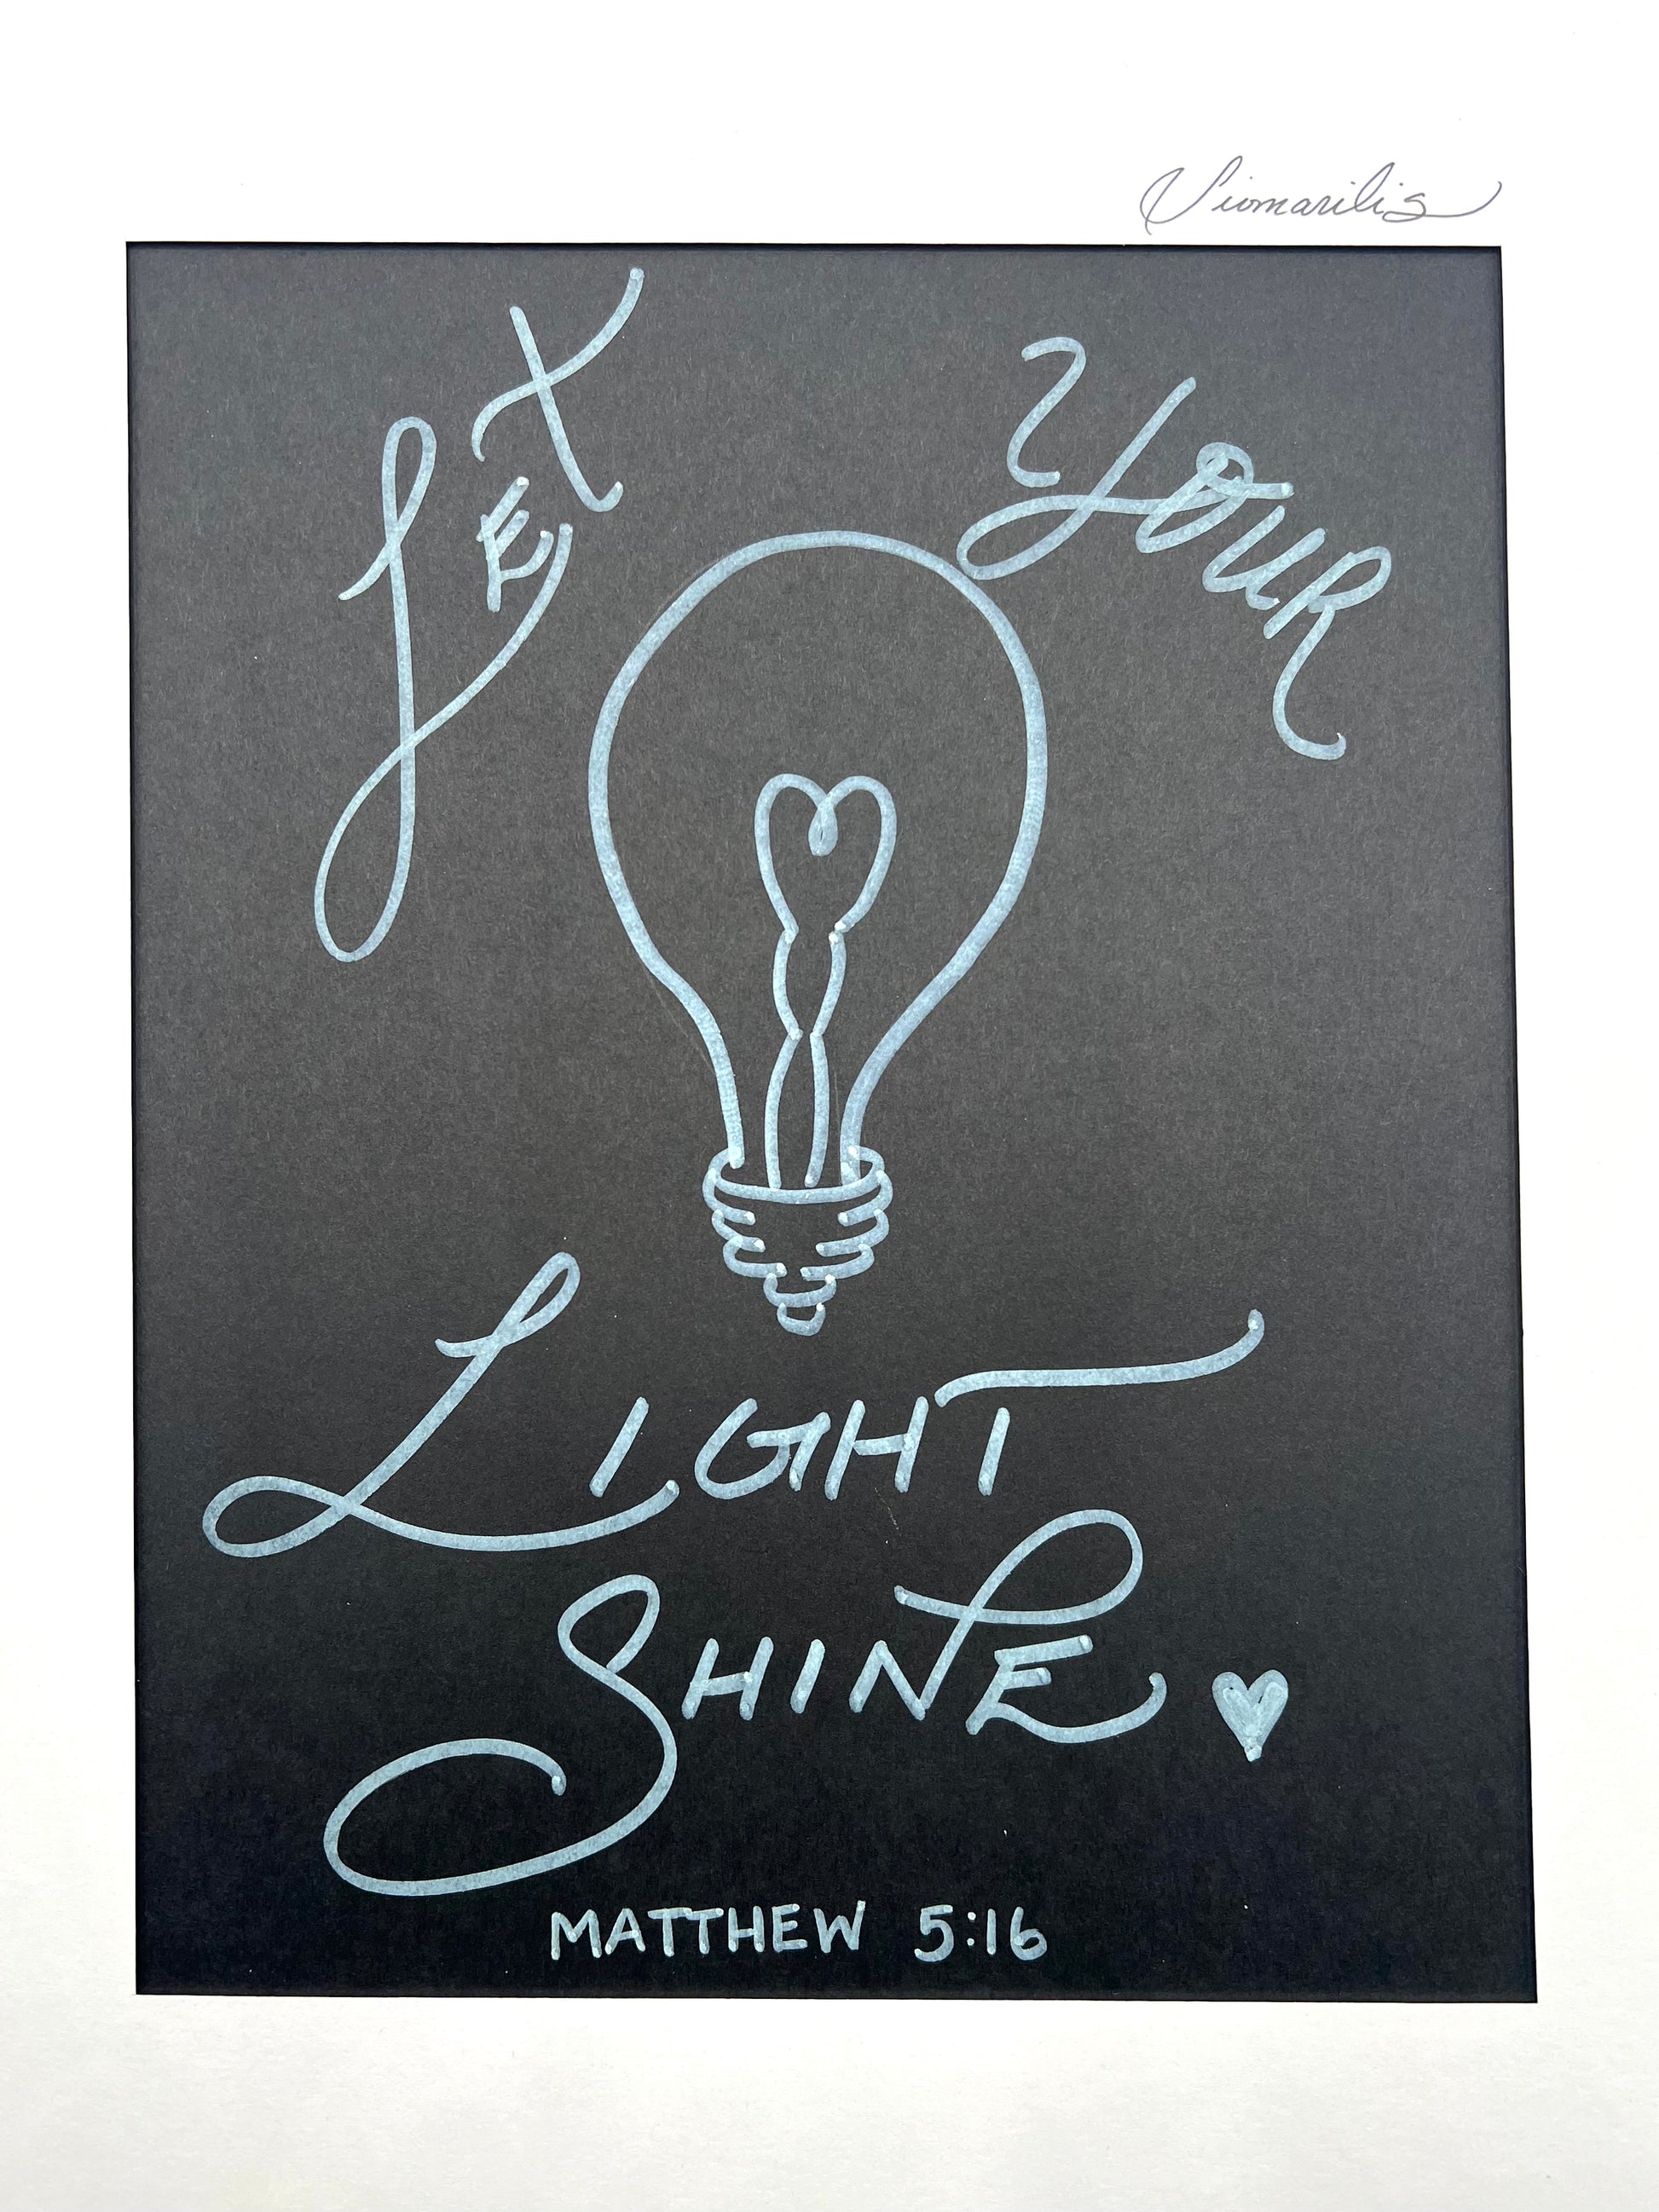 Siomarilis
LET YOUR
LIGHT
SHINE
MATTHEW 5:16